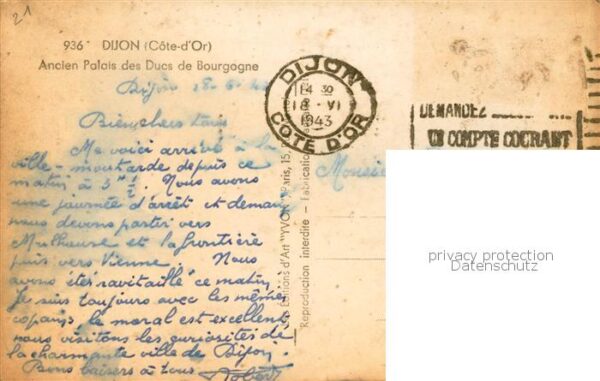 21
936 DIJON (Côte-d'Or)
Ancien Palais des Ducs de Bourgogne
Dijon 18-6-43
Bien chers tous
Me voici arrivé à la
ville-moutarde depuis ce
matin à 3h ½. Nous avons
une journée d'arrêt et demain
nous devons partir vers
Mulhouse et la frontière
puis vers Vienne. Nous
avons été ravitaillé ce matin
Je suis toujours avec les mêmes
copains, le moral est excellent
nous visitons les curiosités de
la charmante ville de Dijon.
Bons baisers à tous Robert
DIJON
14 30
18 VI
1943
COTE D'OR
DEMANDEZ
UN COMPTE COURANT
Monsieur
Editions d'Art "YVON" Paris, 15
Reproduction interdite - Fabrication
privacy protection
Datenschutz